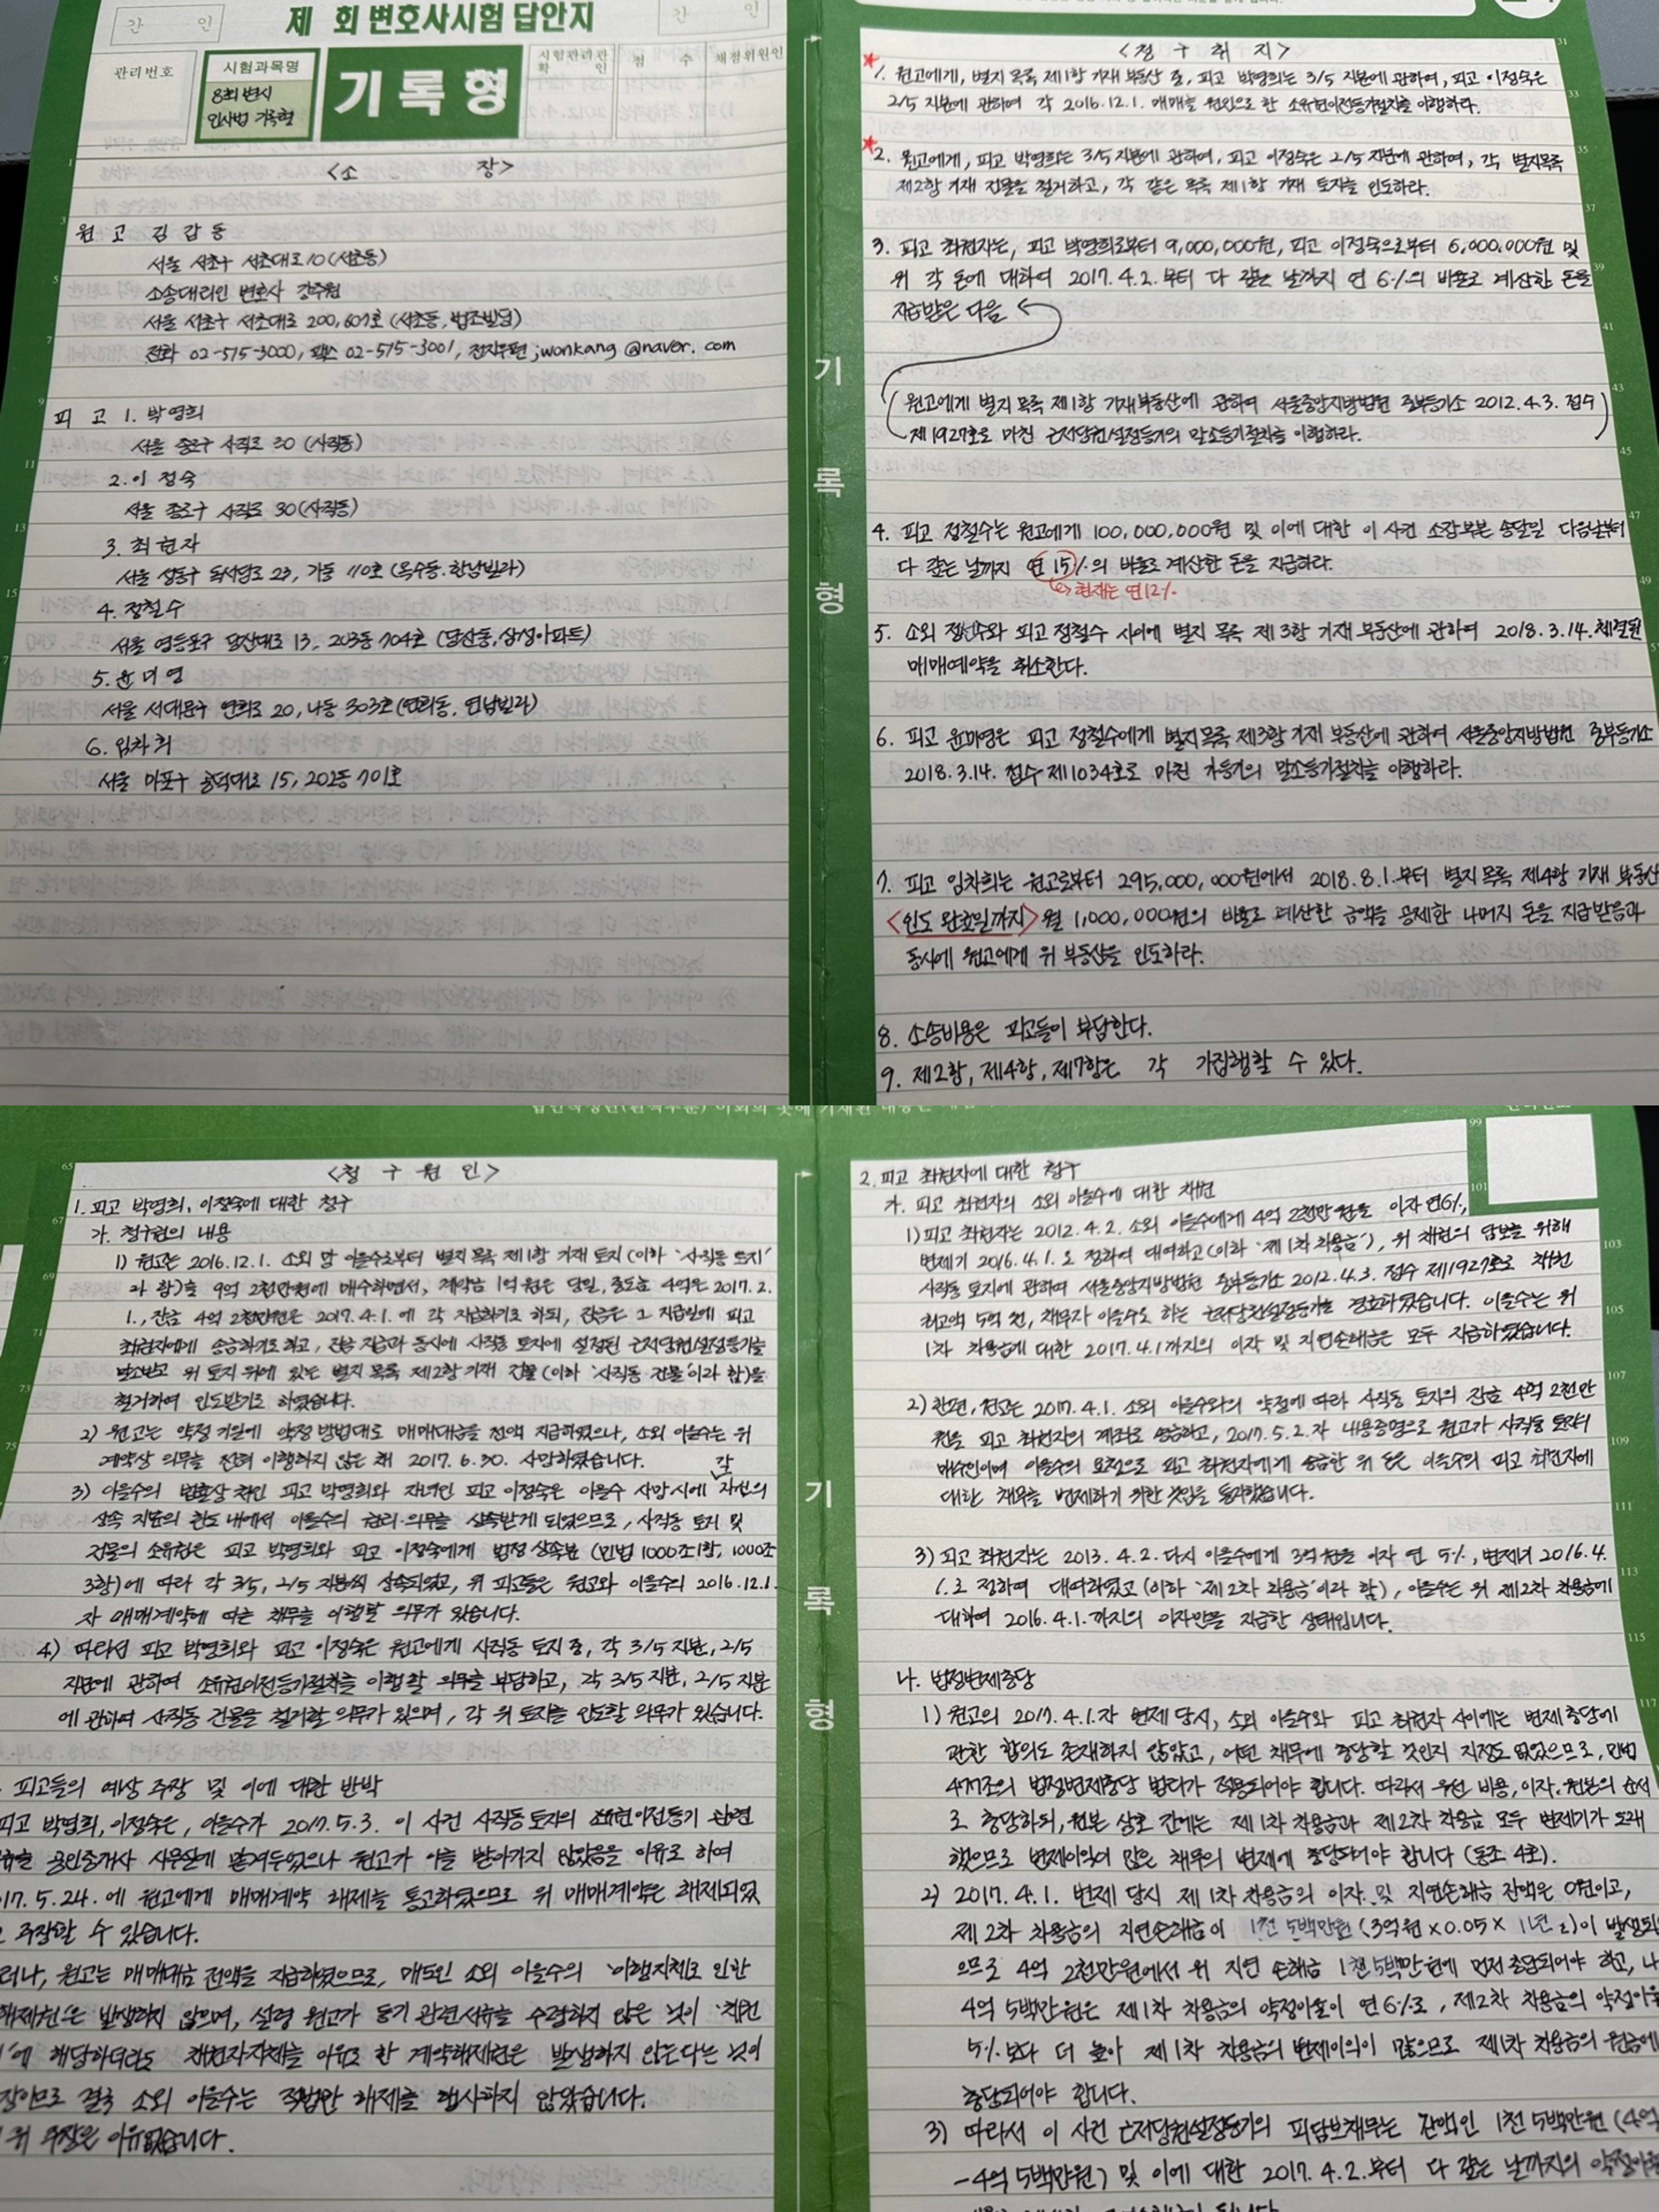 간 인
제 회 변호사시험 답안지
간 인
관리번호
시험과목명
8회 변시
민사법 기록형
기록형
시험관리관 확 인
점 수
채점위원인
<소 장>
원 고 김 갑 동
서울 서초구 서초대로 10 (서초동)
소송대리인 변호사 강주원
서울 서초구 서초대로 200, 607호 (서초동, 법조빌딩)
전화 02-515-3000, 팩스 02-515-3001, 전자우편 ; wonkang @naver. com
피 고 1. 박영희
서울 종로구 사직로 30 (사직동)
2. 이 정숙
서울 종로구 사직로 30 (사직동)
3. 최 현자
서울 성동구 독서당로 23, 가동 110호 (옥수동, 한남빌라)
4. 정철수
서울 영등포구 당산대로 13, 203동 704호 (당산동, 삼성아파트)
5. 윤 미 영
서울 서대문구 연희로 20, 나동 303호 (연희동, 연남빌라)
6. 임차희
서울 마포구 공덕대로 15, 202동 701호
<청 구 취 지>
1. 원고에게, 별지 목록 제1항 기재 부동산 중, 피고 박영희는 3/5 지분에 관하여, 피고 이정숙은
2/5 지분에 관하여 각 2016. 12. 1. 매매를 원인으로 한 소유권이전등기절차를 이행하라.
2. 원고에게, 피고 박영희는 3/5 지분에 관하여, 피고 이정숙은 2/5 지분에 관하여, 각 별지목록
제2항 기재 건물을 철거하고, 각 같은 목록 제1항 기재 토지를 인도하라.
3. 피고 최현자는, 피고 박영희로부터 9,000,000원, 피고 이정숙으로부터 6,000,000원 및
위 각 돈에 대하여 2017. 4. 2. 부터 다 갚는 날까지 연 6%의 비율로 계산한 돈을
지급받은 다음
원고에게 별지 목록 제1항 기재 부동산에 관하여 서울중앙지방법원 중부등기소 2012. 4. 3. 접수
제1927호로 마친 근저당권설정등기의 말소등기절차를 이행하라.
4. 피고 정철수는 원고에게 100,000,000원 및 이에 대한 이 사건 소장부본 송달일 다음날부터
다 갚는 날까지 연 15%의 비율로 계산한 돈을 지급하라.
현재는 연12%
5. 소외 정선수와 피고 정철수 사이에 별지 목록 제3항 기재 부동산에 관하여 2018. 3. 14. 체결된
매매예약을 취소한다.
6. 피고 윤미영은 피고 정철수에게 별지목록 제3항 기재 부동산에 관하여 서울중앙지방법원 중부등기소
2018. 3. 14. 접수 제1034호로 마친 가등기의 말소등기절차를 이행하라.
7. 피고 임차희는 원고로부터 295,000,000원에서 2018. 8. 1. 부터 별지 목록 제4항 기재 부동산
<인도 완료일까지> 월 1,000,000원의 비율로 계산한 금액을 공제한 나머지 돈을 지급받음과
동시에 원고에게 위 부동산을 인도하라.
8. 소송비용은 피고들이 부담한다.
9. 제2항, 제4항, 제7항은 각 가집행할 수 있다.
기
록
형
<청 구 원 인>
1. 피고 박영희, 이정숙에 대한 청구
가. 청구권의 내용
1) 원고는 2016. 12. 1. 소외 망 이을수로부터 별지 목록 제1항 기재 토지 (이하 '사직동 토지'
라 함)을 9억 2천만원에 매수하면서, 계약금 1억 원은 당일, 중도금 4억은 2017. 2.
1., 잔금 4억 2천만원은 2017. 4. 1. 에 각 지급하기로 하되, 잔금은 그 지급일에 피고
최현자에게 송금하기로 하고, 잔금 지급과 동시에 사직동 토지에 설정된 근저당권설정등기를
말소받고 위 토지 위에 있는 별지 목록 제2항 기재 건물 (이하 '사직동 건물'이라 함)을
철거하여 인도받기로 하였습니다.
2) 원고는 약정 기일에 약정 방법대로 매매대금을 전액 지급하였으나, 소외 이을수는 위
계약상 의무를 전혀 이행하지 않은 채 2017. 6. 30. 사망하였습니다.
3) 이을수의 법률상 처인 피고 박영희와 자녀인 피고 이정숙은 이을수 사망시에 각 자신의
상속 지분의 한도 내에서 이을수의 권리·의무를 상속받게 되었으므로, 사직동 토지 및
건물의 소유권은 피고 박영희와 피고 이정숙에게 법정 상속분 (민법 1000조1항, 1000조
3항)에 따라 각 3/5, 2/5 지분씩 상속되었고, 위 피고들은 원고와 이을수의 2016. 12. 1.
자 매매계약에 따른 채무를 이행할 의무가 있습니다.
4) 따라서 피고 박영희와 피고 이정숙은 원고에게 사직동 토지 중, 각 3/5 지분, 2/5
지분에 관하여 소유권이전등기절차를 이행할 의무를 부담하고, 각 3/5 지분, 2/5 지분
에 관하여 사직동 건물을 철거할 의무가 있으며, 각 위 토지를 인도할 의무가 있습니다.
피고들의 예상 주장 및 이에 대한 반박
피고 박영희, 이정숙은, 이을수가 2017. 5. 3. 이 사건 사직동 토지의 소유권이전등기 관련
공인중개사 사무실에 맡겨두었으나 원고가 이를 받아가지 않았음을 이유로 하여
17. 5. 24. 에 원고에게 매매계약 해제를 통고하였으므로 위 매매계약은 해제되었
주장할 수 있습니다.
러나, 원고는 매매대금 전액을 지급하였으므로, 매도인 소외 이을수의 '이행지체로 인한
해제권'은 발생하지 않으며, 설령 원고가 등기 관련서류를 수령하지 않은 것이 '채권
'에 해당하더라도 채권자지체를 이유로 한 계약해제권은 발생하지 않는다는 것이
장이므로 결국 소외 이을수는 적법한 해제를 행사하지 않았습니다.
위 주장은 이유없습니다.
2. 피고 최현자에 대한 청구
가. 피고 최현자의 소외 이을수에 대한 채권
1) 피고 최현자는 2012. 4. 2. 소외 이을수에게 4억 2천만 원을 이자 연6%,
변제기 2016. 4. 1. 로 정하여 대여하고 (이하 '제1차 차용금'), 위 채권의 담보를 위해
사직동 토지에 관하여 서울중앙지방법원 중부등기소 2012. 4. 3. 접수 제1927호로 채권
최고액 5억 원, 채무자 이을수로 하는 근저당권설정등기를 경료하였습니다. 이을수는 위
1차 차용금에 대한 2017. 4. 1까지의 이자 및 지연손해금은 모두 지급하였습니다.
2) 한편, 원고는 2017. 4. 1. 소외 이을수와의 약정에 따라 사직동 토지의 잔금 4억 2천만
원을 피고 최현자의 계좌로 송금하고, 2017. 5. 2. 자 내용증명으로 원고가 사직동 토지의
매수인이며 이을수의 요청으로 피고 최현자에게 송금한 위 돈은 이을수의 피고 최현자에
대한 채무를 변제하기 위한 것임을 통지했습니다.
3) 피고 최현자는 2013. 4. 2. 다시 이을수에게 3억 원을 이자 연 5%, 변제기 2016. 4.
1. 로 정하여 대여하였고 (이하 '제2차 차용금'이라 함), 이을수는 위 제2차 차용금에
대하여 2016. 4. 1. 까지의 이자만을 지급한 상태입니다.
나. 법정변제충당
1) 원고의 2017. 4. 1. 자 변제 당시, 소외 이을수와 피고 최현자 사이에는 변제 충당에
관한 합의도 존재하지 않았고, 어떤 채무에 충당할 것인지 지정도 없었으므로, 민법
477조의 법정변제충당 법리가 적용되어야 합니다. 따라서 우선 비용, 이자, 원본의 순서
로 충당하되, 원본 상호 간에는 제1차 차용금과 제2차 차용금 모두 변제기가 도래
했으므로 변제이익이 많은 채무의 변제에 충당되어야 합니다 (동조 4호).
2) 2017. 4. 1. 변제 당시 제1차 차용금의 이자 및 지연손해금 잔액은 0원이고,
제2차 차용금의 지연손해금이 1천 5백만원 (3억원 × 0.05 × 1년)이 발생되
으므로 4억 2천만원에서 위 지연 손해금 1천 5백만원에 먼저 충당되어야 하고, 나
4억 5백만원은 제1차 차용금의 약정이율이 연 6%로, 제2차 차용금의 약정이율
5%보다 더 높아 제1차 차용금의 변제이익이 많으므로 제1차 차용금의 원금에
충당되어야 합니다.
3) 따라서 이 사건 근저당권설정등기의 피담보채무는 잔액인 1천 5백만원 (4억
-4억 5백만원) 및 이에 대한 2017. 4. 2. 부터 다 갚는 날까지의 약정이율
기
록
형